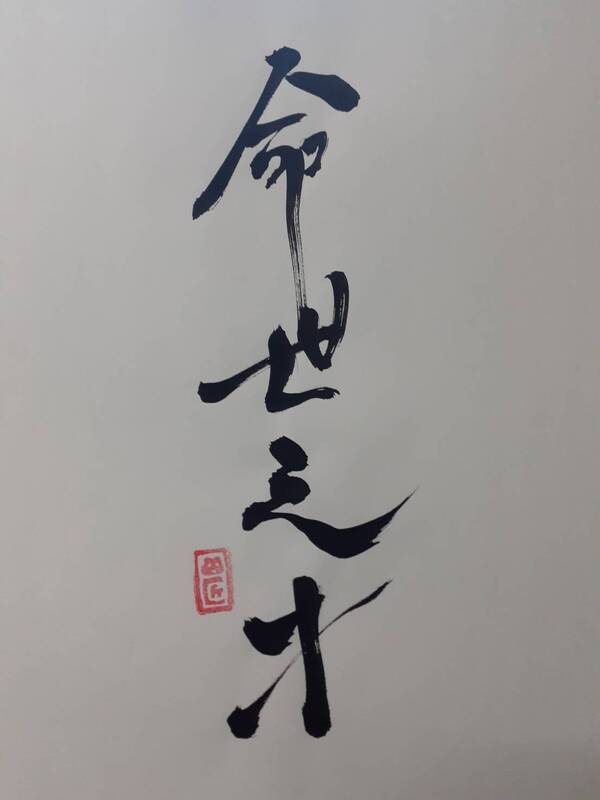 命世之才